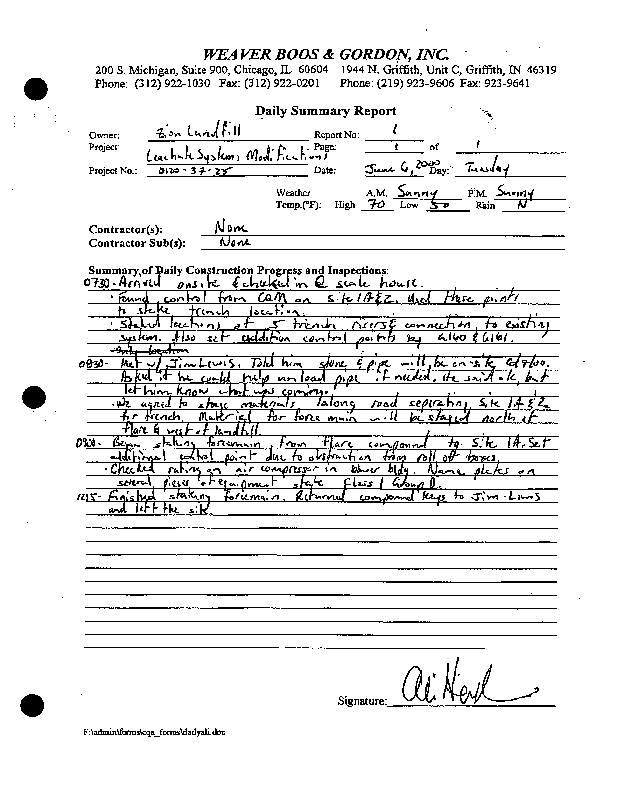 WEAVER BOOS & GORDON, INC.
200 S. Michigan, Suite 900, Chicago, IL 60604 1944 N. Griffith, Unit C, Griffith, IN 46319
Phone: (312) 922-1030 Fax: (312) 922-0201 Phone: (219) 923-9606 Fax: 923-9641
Daily Summary Report
Owner: Zion Landfill Report No: 1
Project: Leachate System Modifications Page: 1 of 1
Project No.: 0120-37-25 Date: June 6, 2000 Day: Tuesday
Weather A.M. Sunny P.M. Sunny
Temp.(°F): High 70 Low 50 Rain N
Contractor(s): None
Contractor Sub(s): None
Summary of Daily Construction Progress and Inspections:
0730- Arrived onsite & checked in @ scale house.
· Found control from CQM on site 1A&2, used these points
to stake trench location.
· Staked locations of 5 trench risers & connection to existing
system. Also set addition control points by
0830- Met w/ Jim Lewis. Told him stone & pipe will be on-site
Asked if he could help unload pipe if needed, He said ok, but
let him know what ups coming.
· We agreed to stage materials along road separating Site 1A & 2
for trench. Material for force main will be staged north of
flare & west of landfill.
Began staking forcemain from flare compound to Site 1A. Set
additional control point due to obstruction from roll off boxes.
· Checked rating on air compressor in blower bldg. Name plates on
several pieces of equipment state Class 1 Group D.
Finished staking forcemain. Returned compound keys to Jim Lewis
and left the site.
Signature:
F:\admin\forms\cqa_forms\dadyali.doc